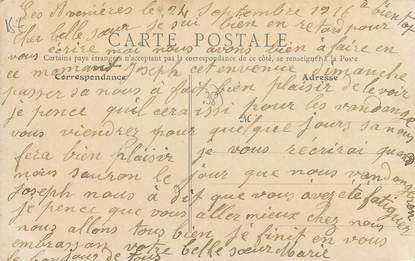 Les Avenières le 24 Septembre 1916
cher belle sœur je sui bien en retard pour
vous écrire mai nous avons bien à faire en
CARTE POSTALE
Certains pays étrangers n'acceptant pas la correspondance de ce côté, se renseigner à la Poste
ce moment Joseph cet en venue dimanche
Correspondance
Adresse
passer sa nous à fait bien plaisir de le voir
je pence quil cera issi pour les vandange
M
vous viendrez pour quelque jours sa nous
fera bien plaisir je vous recrirai quand
nous sauron le jour que nous vandangeron
Joseph nous à dit que vous avez été fatiguer
je pence que vous allez mieux chez nous
nous allons tous bien je finit en vous
embrassan votre belle sœur Marie
le bonjour de tous